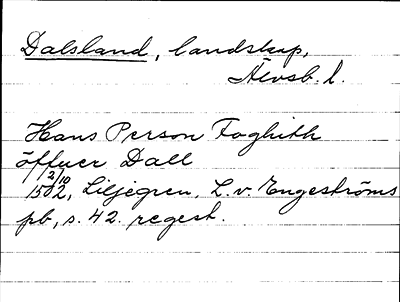 Dalsland, landskap,
Älvsb. l.
Hans Person Foghith
öffuer Dall
12/10
1502, Liljegren, L. v. Engeströms
pb, s. 42. regest.